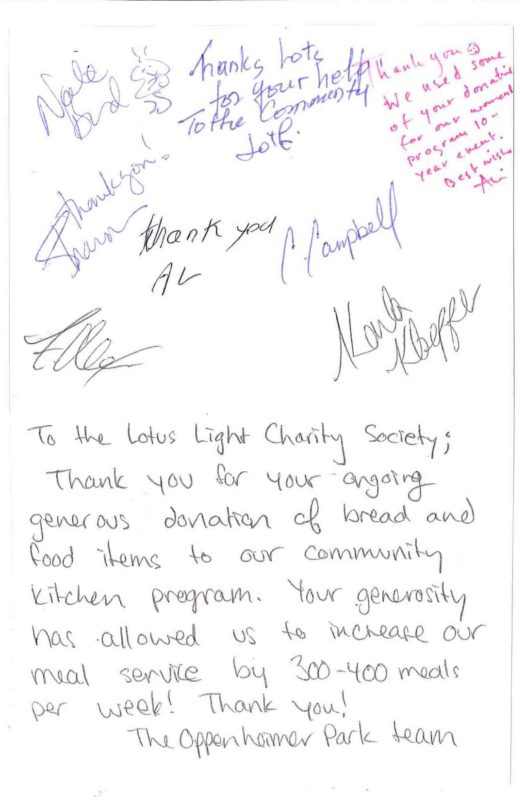 Thanks Lots
for your help
To the Community
Thank you
We used some
of your donation
for our women's
program 10-
year event.
Best wishes
Thankyou!
Sharon
thank you
AL
C Campbell
To the Lotus Light Charity Society;
Thank you for your ongoing
generous donation of bread and
food items to our community
kitchen program. Your generosity
has allowed us to increase our
meal service by 300-400 meals
per week! Thank you!
The Oppenheimer Park team